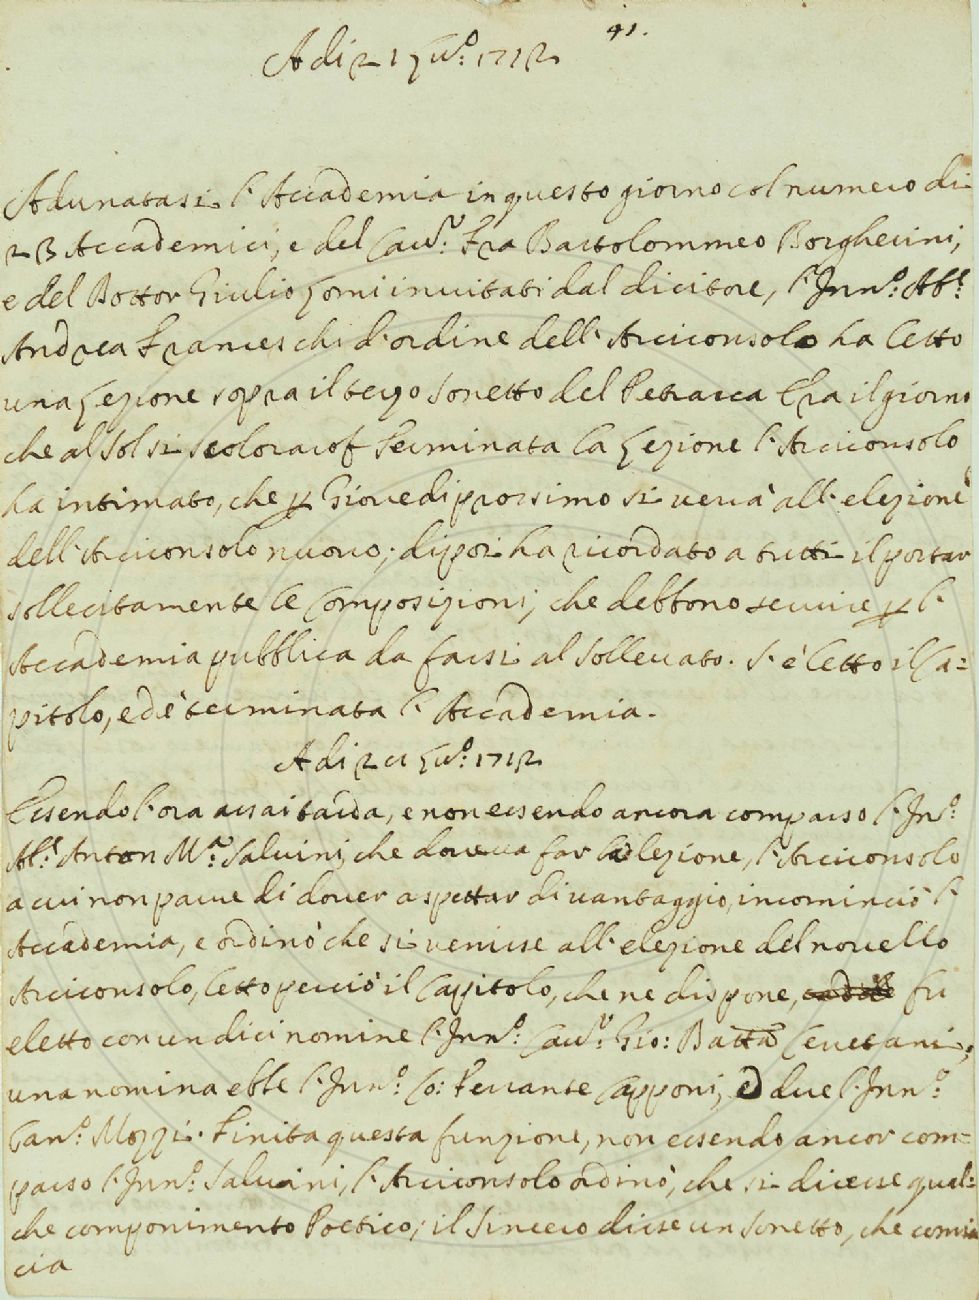 41.
Adi 21 Lug.o 1712
Adunatasi l'Accademia in questo giorno col numero di
23 Accademici, e del Cav.r Fra Bartolommeo Borgherini,
e del Dottor Giulio Lomi invitati dal dicitore, l'Inn.o Ab.e
Andrea Franceschi d'ordine dell'Arciconsolo ha letto
una Lezione sopra il terzo Sonetto del Petrarca Era il giorno
che al Sol si scoloraro Terminata la Lezione l'Arciconsolo
ha intimato, che p Giovedi prossimo si verrà all'elezione
dell'Arciconsolo nuovo; dipoi ha ricordato a tutti il portar
sollecitamente le Composizioni, che debbono servire p l'
Accademia pubblica da farsi al Sollevato. S'è letto il Ca=
pitolo, ed è terminata l'Accademia.
Adi Lug.o 1712
Essendo l'ora assai tarda, e non essendo ancora comparso l'In.o
Ab.e Anton M.a Salvini, che doveva far la lezione, l'Arciconsolo
a cui non parve di dover aspettar di vantaggio, incominciò l'
Accademia, e ordinò che si venisse all'elezione del novello
Arciconsolo, letto perciò il Capitolo, che ne dispone, fu
eletto con undici nomine l'Inn.o Cav.r Gio: Batta Cervetani;
una nomina ebbe l'Inn.o Co: Ferrante Capponi, e due l'Inn.o
Can.o Mozzi. Finita questa funzione, non essendo ancor com=
parso l'Inn.o Salvini, l'Arciconsolo ordinò, che si dicesse qual=
che componimento Poetico; il Sincero disse un Sonetto, che comin
cia